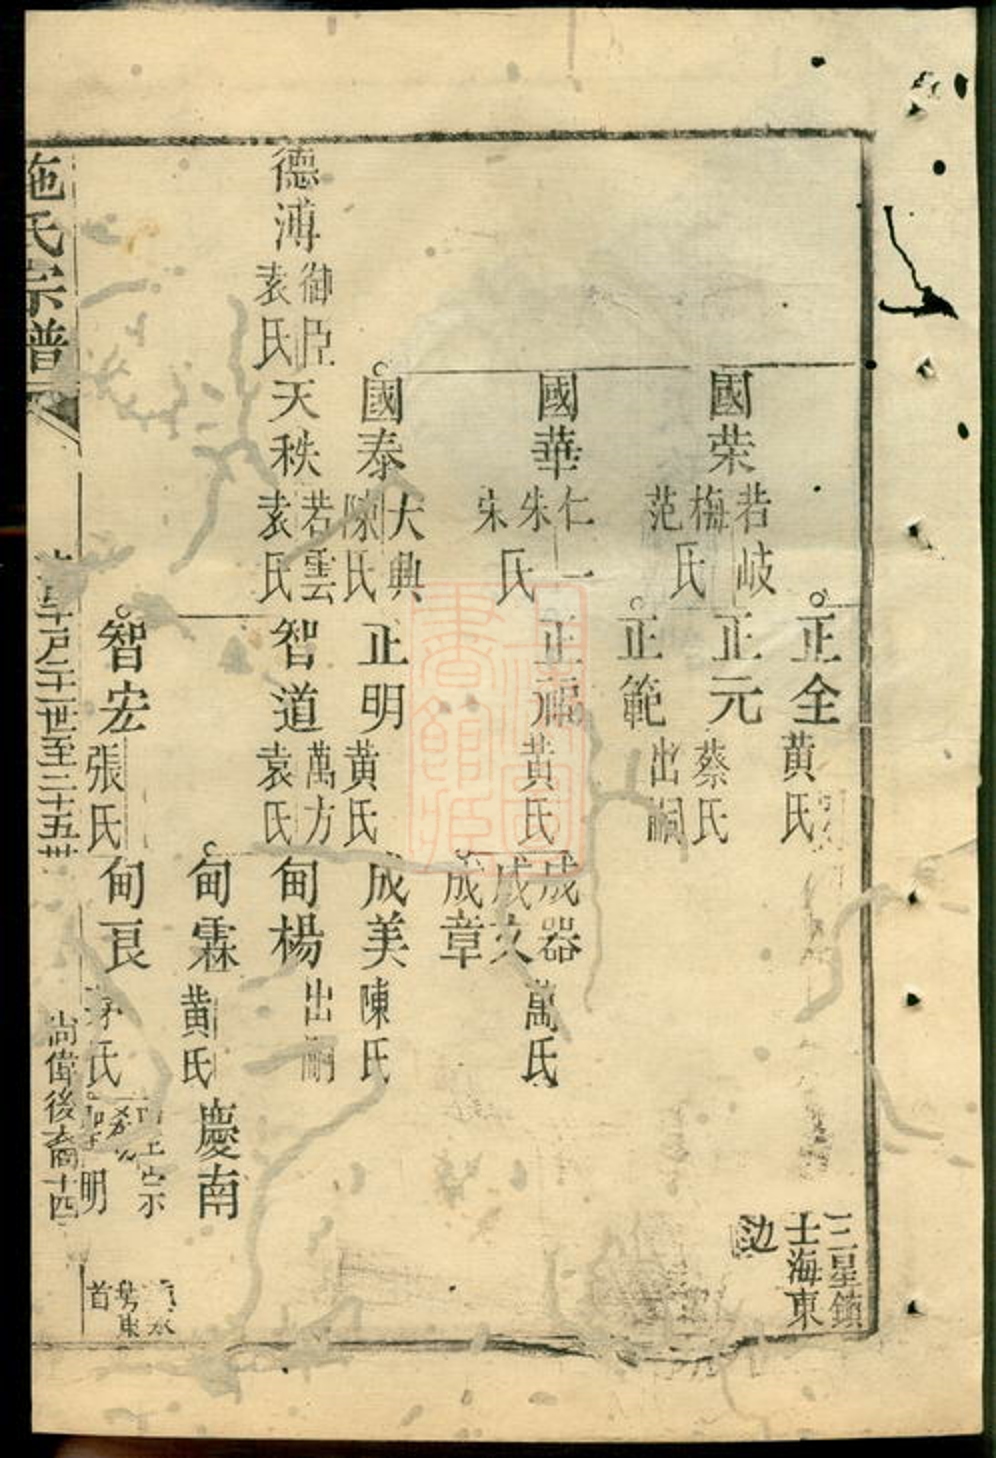 三星鎮
士海東
边
正全
黄氏
國荣
若岐
梅氏
范
正元
蔡氏
正範
出嗣
國華
仁一
朱氏
宋
正福
黃氏
成器
萬氏
成文
成章
國泰
大興
陳氏
正明
黄氏
成美
陳氏
德溥
御臣
袁氏
天秩
若雲
袁氏
智道
萬方
袁氏
甸楊
出嗣
甸霖
黄氏
慶南
智宏
張氏
甸良
氏
明
首
施氏宗譜
世至二十五世
尚偉後裔十四